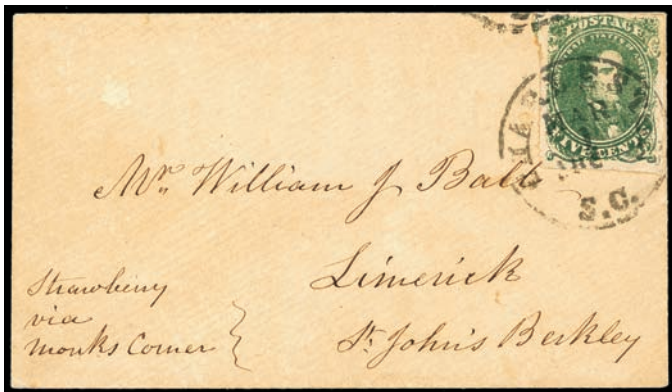 POSTAGE
FIVE CENTS
S.C.
Mr. William J Ball
Limerick
St. John's Berkley
Strawberry
via
Monks Corner